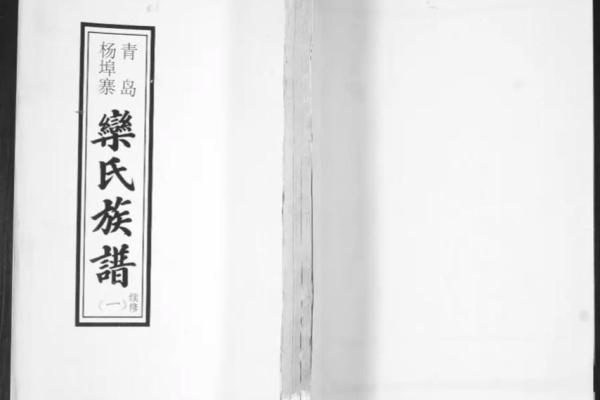 青岛
杨埠寨
欒氏族譜
续修
（一）